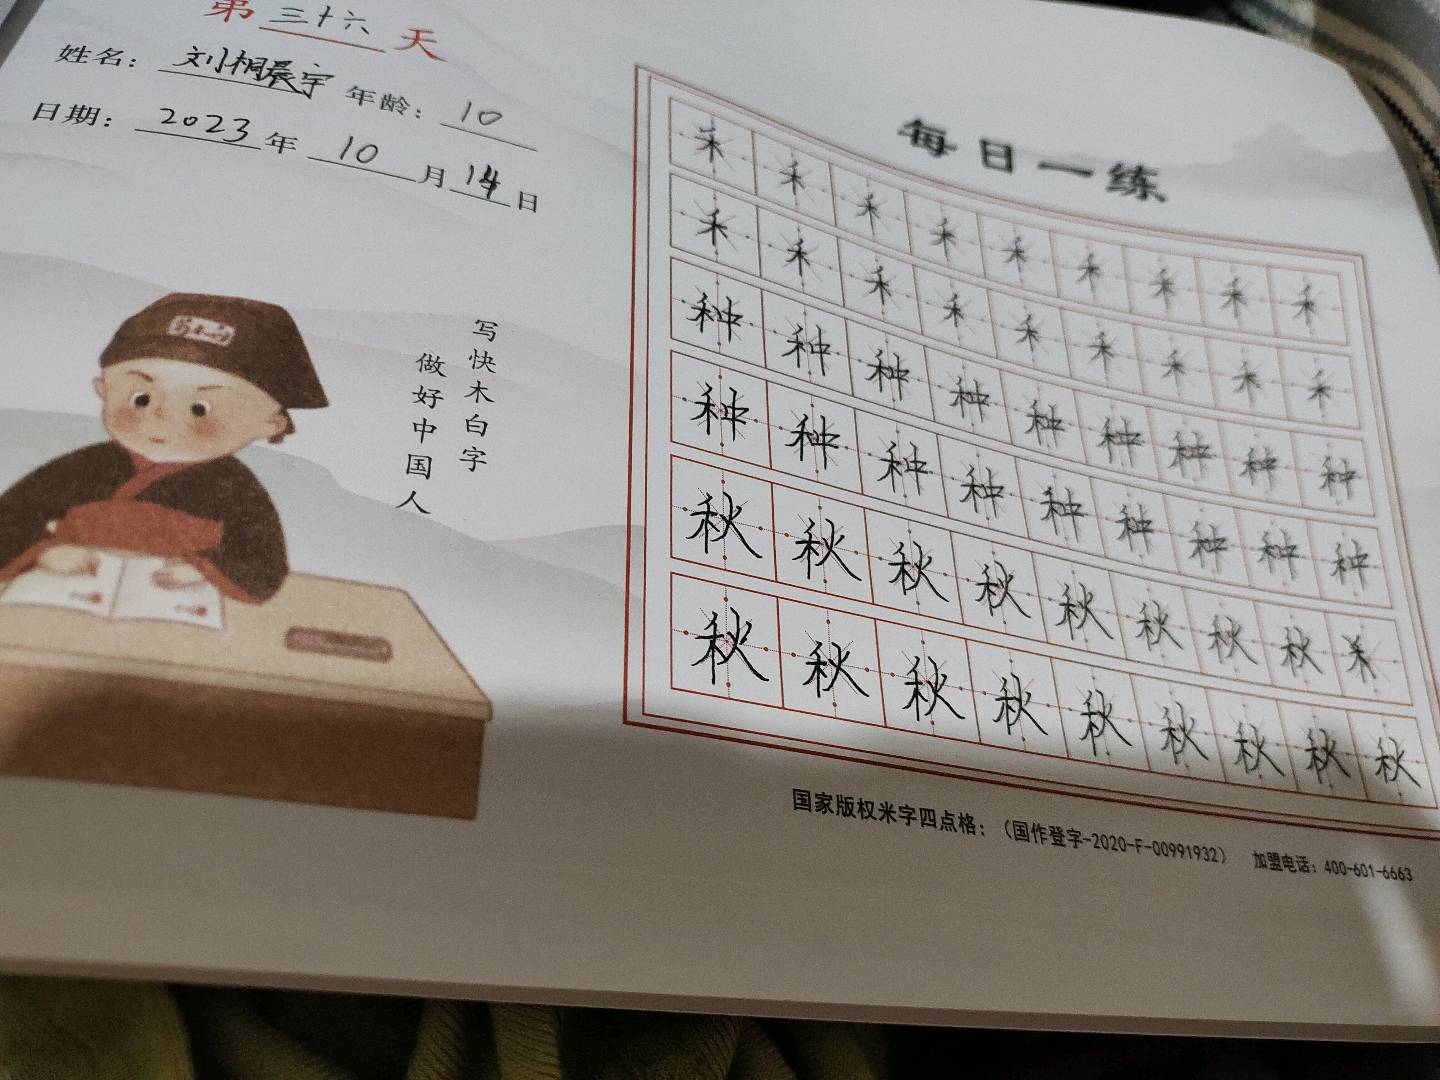 第三十六天
姓名：刘桐晨宇 年龄：10
日期：2023年10月14日
每日一练
禾禾禾禾禾禾禾禾禾
禾禾禾禾禾禾禾禾禾
种种种种种种种种种
种种种种种种种种种
秋秋秋秋秋秋秋秋禾
秋秋秋秋秋秋秋秋秋
写快木白字
做好中国人
国家版权米字四点格：（国作登字-2020-F-00991932） 加盟电话：400-601-6663